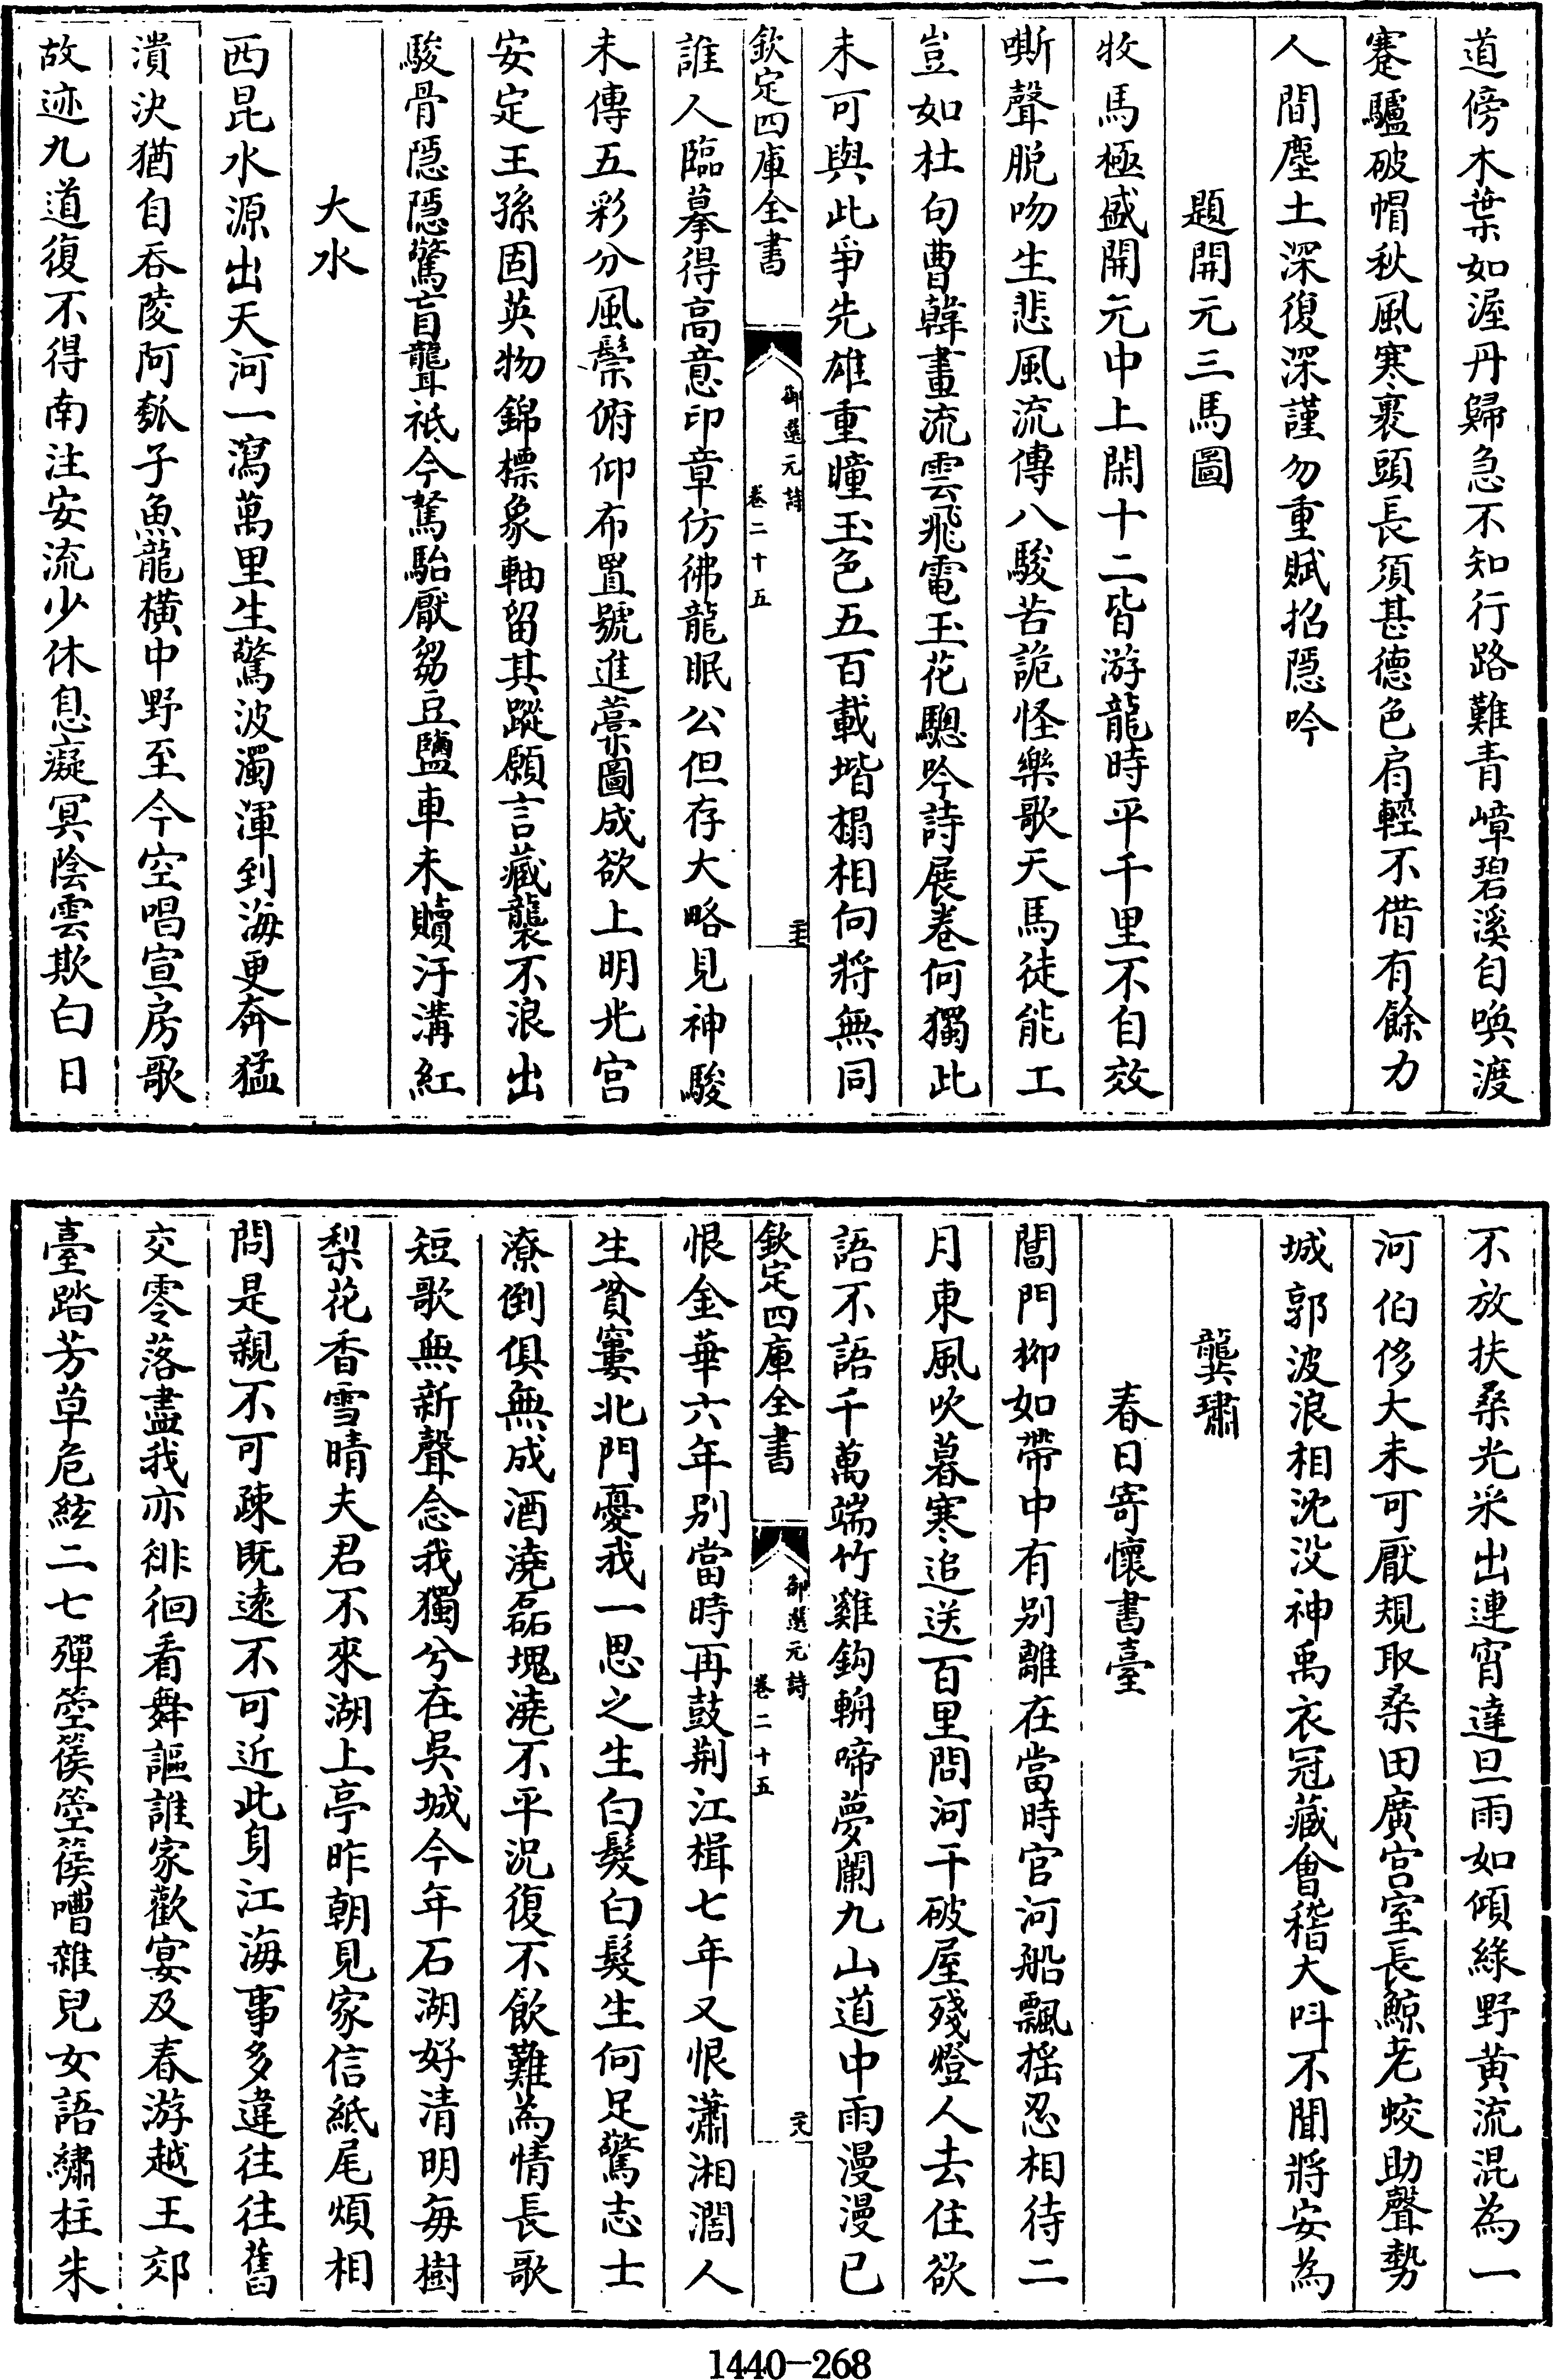 道傍木葉如渥丹歸急不知行路難青嶂碧溪自喚渡
蹇驢破帽秋風寒裹頭長須甚德色肩輕不借有餘力
人間塵土深復深謹勿重賦招隱吟
題開元三馬圖
牧馬極盛開元中上閑十二皆游龍時平千里不自效
嘶聲脱吻生悲風流傳八駿苦詭怪樂歌天馬徒能工
豈如杜句曹韓畫流雲飛電玉花驄吟詩展卷何獨此
未可與此爭先雄重瞳玉色五百載堦榻相向將無同
欽定四庫全書
御選元詩
卷二十五
誰人臨摹得高意印章仿彿龍眠公但存大略見神駿
未傳五彩分風鬃俯仰布置號進藁圖成欲上明光宫
安定王孫固英物錦標象軸留其蹤願言藏襲不浪出
駿骨隱隱驚盲聾祗今駑駘厭芻豆鹽車未贖汙溝紅
大水
西昆水源出天河一瀉萬里生驚波濁渾到海更奔猛
潰決猶自吞陵阿瓠子魚龍横中野至今空唱宣房歌
故迹九道復不得南注安流少休息癡冥陰雲欺白日
不放扶桑光采出連宵達旦雨如傾綠野黄流混為一
河伯侈大未可厭規取桑田廣宫室長鯨老蛟助聲勢
城郭波浪相沈没神禹衣冠藏會稽大呌不聞將安為
龔璛
春日寄懷書臺
閶門柳如帶中有别離在當時官河船飄摇忍相待二
月東風吹暮寒追送百里問河干破屋殘燈人去住欲
語不語千萬端竹雞鈎輈啼夢闌九山道中雨漫漫已
欽定四庫全書
御選元詩
卷二十五
恨金華六年别當時再鼓荆江楫七年又恨瀟湘濶人
生貧窶北門憂我一思之生白髮白髮生何足驚志士
潦倒俱無成酒澆磊塊澆不平況復不飲難為情長歌
短歌無新聲念我獨兮在吳城今年石湖好清明每樹
梨花香雪晴夫君不來湖上亭昨朝見家信紙尾煩相
問是親不可疎既遠不可近此身江海事多違往往舊
交零落盡我亦徘徊看舞謳誰家歡宴及春游越王郊
臺踏芳草危絃二七彈箜篌箜篌嘈雜兒女語繡柱朱
1440—268